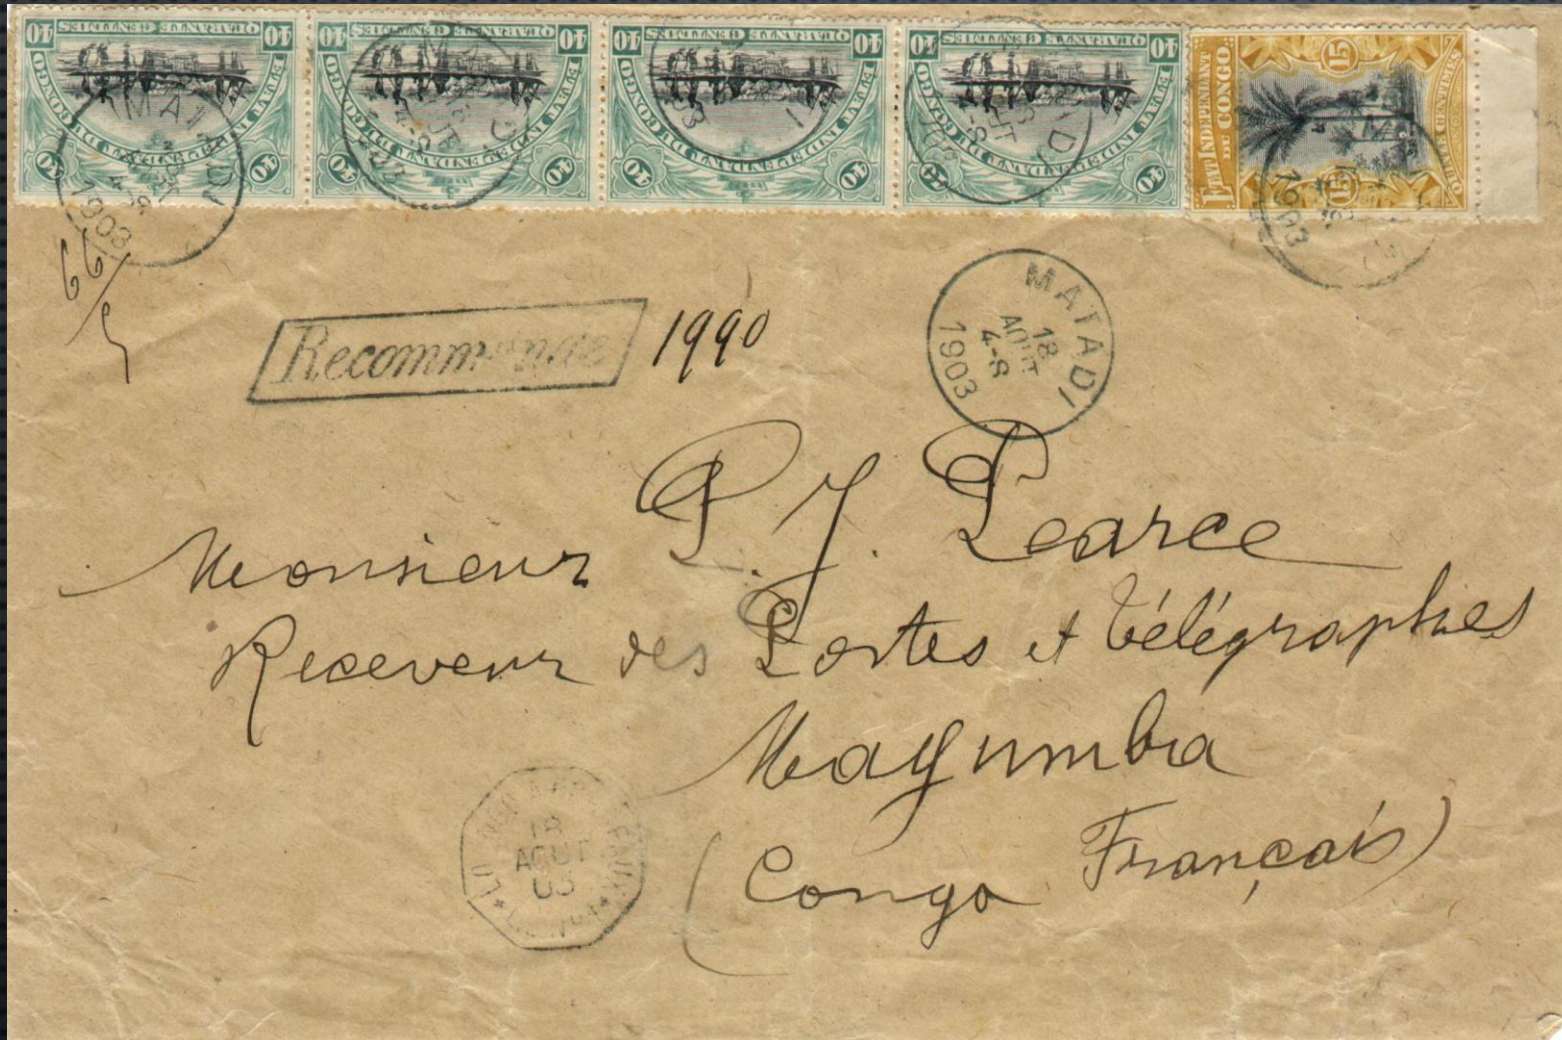 40 QUARANTE CENTIMES 40
ETAT INDÉPENDANT DU CONGO
40 40
40 QUARANTE CENTIMES 40
ETAT INDÉPENDANT DU CONGO
40 40
40 QUARANTE CENTIMES 40
ETAT INDÉPENDANT DU CONGO
40 40
40 QUARANTE CENTIMES 40
ETAT INDÉPENDANT DU CONGO
40 40
ETAT INDÉPENDANT
DU CONGO
15 15
QUINZE CENTIMES
MATADI
1903
MATADI
1903
66/5
Recommandé 1990
MATADI
18
AOUT
4-S
1903
Monsieur P. J. Pearce
Receveur des Postes et Télégraphes
Mayumba
(Congo Français)
18
AOUT
03